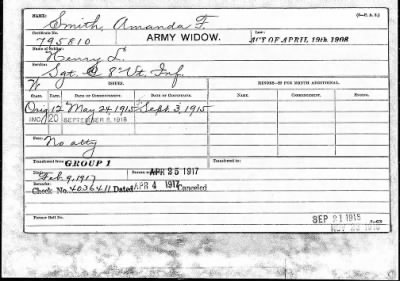 NAME: (3—P. A. S.)
Smith, Amanda F.
Certificate No. Law:
795810 ARMY WIDOW. ACT OF APRIL 19th 1908
Name of Soldier:
Henry L.
Service:
Sgt. 8" Vt. Inf.
ISSUES. MINORS—$2 PER MONTH ADDITIONAL.
CLASS. RATE. DATE OF COMMENCEMENT. DATE OF CERTIFICATE. NAME. COMMENCEMENT. ENDING.
Orig 12 May 24, 1915 Sept. 3, 1915
INC. 20 SEPTEMBER 8, 1916
No atty
Transferred from GROUP 1 Transferred to:
Feb. 9, 1917 APR 25 1917
Remarks:
Check No. 4036411 Dated APR 4 1917 Canceled
SEP 21 1915